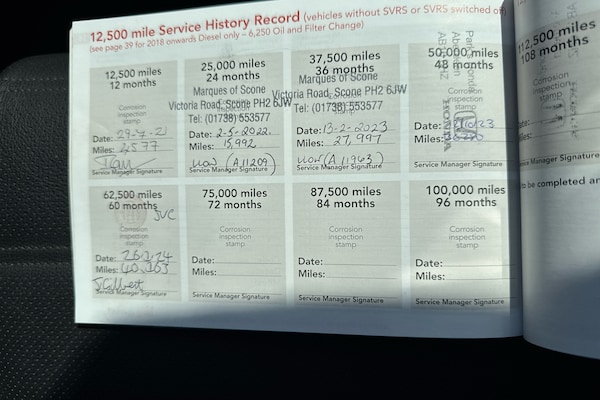 12,500 mile Service History Record (vehicles without SVRS or SVRS switched off)
(see page 39 for 2018 onwards Diesel only – 6,250 Oil and Filter Change)
12,500 miles
12 months
Corrosion
inspection
stamp
Date: 29-7-21
Miles: 2577
Service Manager Signature
25,000 miles
24 months
Marques of Scone
Victoria Road, Scone PH2 6JW
Tel: (01738) 553577
Date: 2-5-2022.
Miles: 15,992
(A11209)
Service Manager Signature
37,500 miles
36 months
Marques of Scone
Victoria Road, Scone PH2 6JW
Tel: (01738) 553577
Date: 13-2-2023
Miles: 27,997
(A11963)
Service Manager Signature
50,000 miles
48 months
Corrosion
inspection
stamp
HONDA
Date:
Miles:
Service Manager Signature
62,500 miles
60 months
JVC
Corrosion
inspection
stamp
Date:
Miles: 40,363
Service Manager Signature
75,000 miles
72 months
Corrosion
inspection
stamp
Date:
Miles:
Service Manager Signature
87,500 miles
84 months
Corrosion
inspection
stamp
Date:
Miles:
Service Manager Signature
100,000 miles
96 months
Corrosion
inspection
stamp
Date:
Miles:
Service Manager Signature
112,500 miles
108 months
Corrosion
inspection
stamp
Date:
Miles:
Service Manager Signature
to be completed